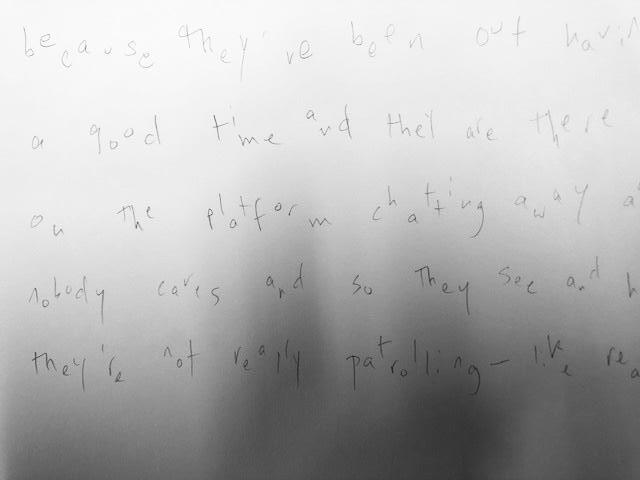 because they've been out havin
a good time and they are there
on the platform chatting away a
nobody cares and so they see and h
they're not really patrolling - like rea